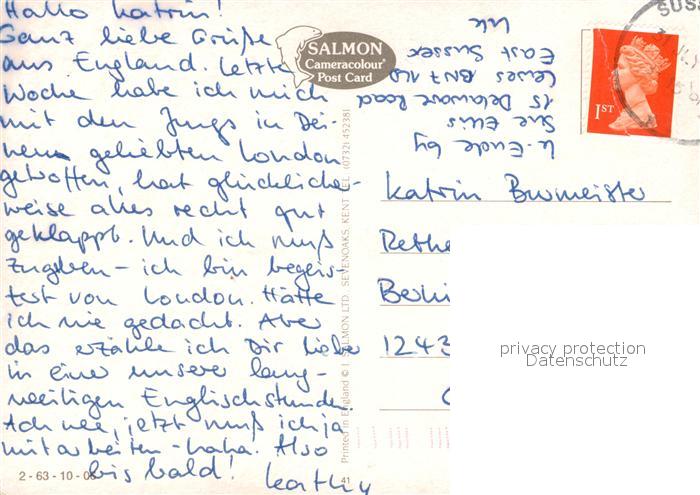 Hallo Katrin!
Ganz liebe Grüße
aus England. Letzte
Woche habe ich mich
mit den Jungs in Dei-
nem geliebten London
getroffen, hat glücklicher-
weise alles recht gut
geklappt. Und ich muß
zugeben - ich bin begeis-
tert von London. Hätte
ich nie gedacht. Aber
das erzähle ich Dir lieber
in einer unserer lang-
weiligen Englischstunden.
Ach nee, jetzt muß ich ja
mitarbeiten - haha. Also
bis bald! Kathy
2-63-10-0
SALMON
Cameracolour
Post Card
Printed in England © J. SALMON LTD., SEVENOAKS, KENT TEL. (0732) 452381
41
by
Sue Ellis
15 Delaware Road
Lewes BN7 1LD
East Sussex
UK
1ST
SUSS
Katrin Burmeister
Rethe
Berli
1243
privacy protection
Datenschutz